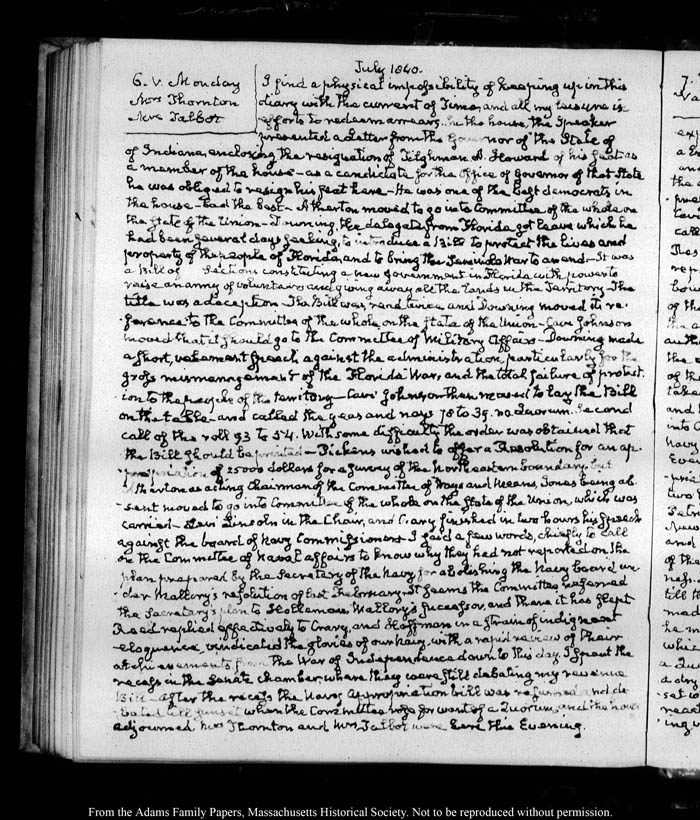 July 1840.
6. V. Monday
Mrs Thornton
Mrs Talbot
I find a physical impossibility of keeping up in this
diary with the current of Time, and all my leisure is
efforts to redeem arrears. In the house, the Speaker
presented a Letter from the Governor of the State of
of Indiana, enclosing the resignation of Tilghman A. Howard of his seat as
a member of the house — as a candidate for the Office of Governor of that State
he was obliged to resign his seat here — He was one of the best democrats in
the house — had the best — Atherton moved to go into Committee of the whole on
the State of the Union — Downing, the delegate from Florida got leave which he
had been several days seeking, to introduce a Bill to protect the lives and
property of the people of Florida, and to bring the Seminole War to an end — It was
a Bill of Sections constituting a new government in Florida with power to
raise an army of volunteers and giving away all the Lands in the Territory — The
title was a deception — The Bill was read twice and Downing moved its re-
-ference to the Committee of the whole on the state of the Union — Cave Johnson
moved that it should go to the Committee of Military Affairs — Downing made
a short, vehement speech against the administration, particularly for the
gross mismanagement of the Florida War, and the total failure of protect-
-ion to the people of the territory — Cave Johnson then moved to lay the Bill
on the table — and called the yeas and nays 70 to 39. no Quorum. Second
call of the roll 93 to 54. With some difficulty the order was obtained that
the Bill should be printed — Pickens wished to offer a Resolution for an ap-
-propriation of 25000 dollars for a survey of the Northeastern boundary, but
Atherton as acting Chairman of the Committee of Ways and Means, Jones being ab-
-sent moved to go into Committee of the whole on the State of the Union, which was
carried — Levi Lincoln in the Chair, and Crary finished in two hours his speech
against the board of Navy Commissioners I said a few words, chiefly to call
on the Committee of Naval affairs to know why they had not reported on the
plan prepared by the Secretary of the Navy for abolishing the Navy board un-
-der Mallory's resolution of last February — It seems the Committee referred
the Secretary's plan to Holleman, Mallory's successor, and there it has slept
Reed replied effectively to Crary, and Hoffman in a strain of indignant
eloquence vindicated the glories of our Navy, with a rapid review of their
atchievements from the War of Independence down to this day. I spent the
recess in the Senate chamber where they were still debating my revenue
Bill — after the recess the Navy appropriation bill was resumed and de-
-bated till sunset when the Committee rose for want of a Quorum, and the house
adjourned Mrs Thornton and Mrs Talbot were here this Evening.
From the Adams Family Papers, Massachusetts Historical Society. Not to be reproduced without permission.